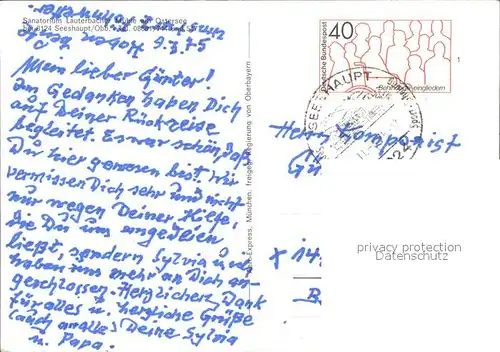 Sanatorium Lauterbacher Mühle am Ostersee
bei 8124 Seeshaupt/Obb.
9.3.75
Mein lieber Günter!
In Gedanken haben Dich
auf Deiner Rückreise
begleitet. Es war schön, daß
Du hier gewesen bist. Wir
vermissen Dich sehr und nicht
nur wegen Deiner Hilfe,
die Du uns angedeien
ließt, sondern Sylvia u. wir
haben uns mehr an Dich an-
geschlossen. Herzlichen Dank
für alles u. herzliche Grüße
auch an alle Deine Sylvia
u. Papa.
freigeg. Regierung von Oberbayern
-Express, München,
40
Deutsche Bundespost
Behinderte eingliedern
1
SEESHAUPT
Herrn Komponist
Gü
X 14
B
privacy protection
watermark